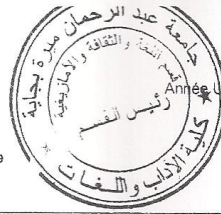 جامعة عبد الرحمان ميرة بجاية
قسم اللغة والثقافة والأمازيغية
رئيس القسم
كلية الآداب واللغات
Année U
9